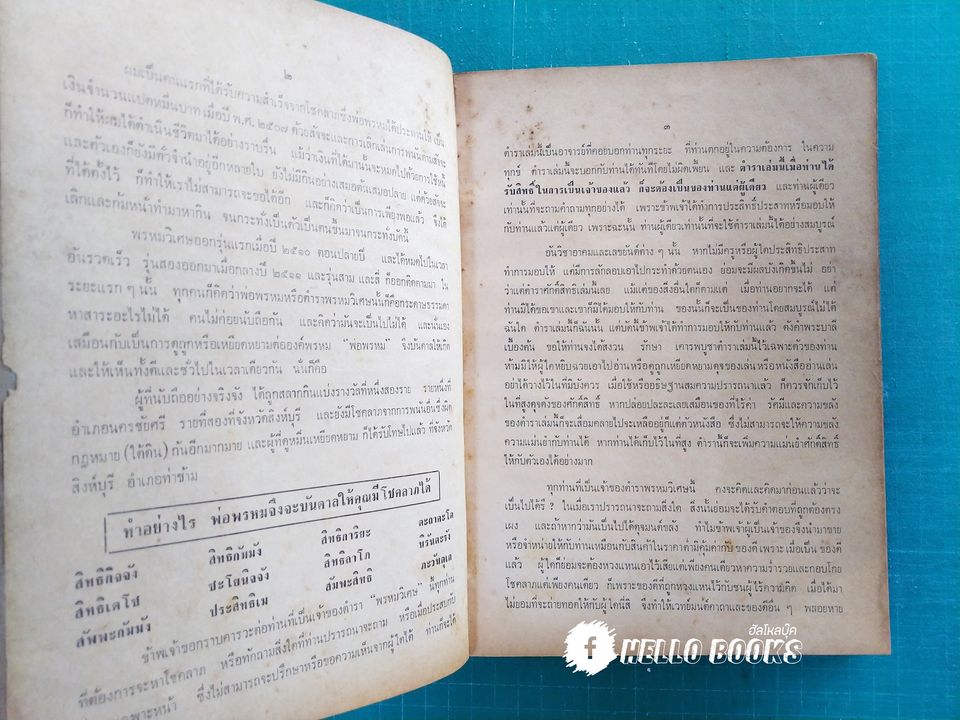 ๒
ผมเป็นคนแรกที่ได้รับความสำเร็จจากโชคลาภซึ่งพ่อพรหมได้ประทานให้ เป็น
เงินจำนวนแปดหมื่นบาทเมื่อปี พ.ศ. ๒๕๐๗ ด้วยสัจจะและการเลิกเล่นการพนันด้านสัจจะ
ก็ทำให้ผมได้ดำเนินชีวิตมาได้อย่างราบรื่น แม้ว่าเงินที่ได้มานั้นจะหมดไปด้วยการใช้หนี้
และตัวเองก็ยังมีตั๋วจำนำอยู่อีกหลายใบ ยังไม่มีกินอย่างเสมอต้นเสมอปลาย แต่ด้วยสัจจะ
ที่ได้ตั้งไว้ ก็ทำให้เราไม่สามารถจะขอได้อีก และก็คิดว่าเป็นการเพียงพอแล้ว จึงได้
เลิกและก้มหน้าทำมาหากิน จนกระทั่งเป็นตัวเป็นตนขึ้นมาจนกระทั่งบัดนี้
พรหมวิเศษออกรุ่นแรกเมื่อปี ๒๕๑๐ ตอนปลายปี และได้หมดไปในเวลา
อันรวดเร็ว รุ่นสองออกมาเมื่อกลางปี ๒๕๑๑ และรุ่นสาม และสี่ ก็ออกติดตามมา ใน
ระยะแรก ๆ นั้น ทุกคนก็คิดว่าพ่อพรหมหรือตำราพรหมวิเศษนั้นก็คือกระดาษธรรมดา
หาสาระอะไรไม่ได้ คนไม่ค่อยนับถือกัน และคิดว่ามันจะเป็นไปไม่ได้ และนั่นเอง
เสมือนกับเป็นการดูถูกหรือเหยียดหยามต่อองค์พรหม "พ่อพรหม" จึงบันดาลให้เกิด
และให้เห็นทั้งดีและชั่วไปในเวลาเดียวกัน นั่นก็คือ
ผู้ที่นับถืออย่างจริงจัง ได้ถูกสลากกินแบ่งรางวัลที่หนึ่งสองราย รายหนึ่งที่
อำเภอนครชัยศรี รายที่สองที่จังหวัดสิงห์บุรี และยังมีโชคลาภจากการพนันอื่นซึ่งผิด
กฎหมาย (ใต้ดิน) กันอีกมากมาย และผู้ที่ดูหมิ่นเหยียดหยาม ก็ได้รับโทษไปแล้ว ที่จังหวัด
สิงห์บุรี อำเภอท่าช้าม
ทำอย่างไร พ่อพรหมจึงจะบันดาลให้คุณมีโชคลาภได้
สิทธิกิจจัง สิทธิกัมมัง สิทธิการิยะ ตะถาคะโต
สิทธิเตโช ชะโยนิจจัง สิทธิลาโภ นิรันตะรัง
สัพพะกัมมัง ประสิทธิเม สัมพะสิทธิ ภะวันตุเต
ข้าพเจ้าขอกราบคารวะต่อท่านที่เป็นเจ้าของตำรา "พรหมวิเศษ" นี้ทุกท่าน
ที่ต้องการจะหาโชคลาภ หรือทักถามสิ่งใดที่ท่านปรารถนาจะถาม หรือเมื่อประสบภัย
เฉพาะหน้า ซึ่งไม่สามารถจะปรึกษาหรือขอความเห็นจากผู้ใดได้ ท่านก็จะได้
๓
ตำราเล่มนี้เป็นอาจารย์ที่คอยบอกท่านทุกระยะ ที่ท่านตกอยู่ในความต้องการ ในความ
ทุกข์ ตำราเล่มนี้จะบอกกับท่านได้ทันทีโดยไม่ผิดเพี้ยน และ ตำราเล่มนี้เมื่อท่านได้
รับสิทธิ์ในการเป็นเจ้าของแล้ว ก็จะต้องเป็นของท่านแต่ผู้เดียว และท่านผู้เดียว
เท่านั้นที่จะถามคำถามทุกอย่างได้ เพราะข้าพเจ้าได้ทำการประสิทธิ์ประสาทหรือมอบให้
กับท่านแล้วแต่ผู้เดียว เพราะฉะนั้น ท่านผู้เดียวเท่านั้นที่จะใช้ตำราเล่มนี้ได้อย่างสมบูรณ์
อันวิชาอาคมและเลขยันต์ต่าง ๆ นั้น หากไม่มีครูหรือผู้ใดประสิทธิประสาท
ทำการมอบให้ แต่มีการลักลอบเอาไปกระทำด้วยตนเอง ย่อมจะมีผลบังเกิดขึ้นไม่ อย่า
ว่าแต่ตำราศักดิ์สิทธิ์เล่มนี้เลย แม้แต่ของสิ่งอื่นใดก็ตามแต่ เมื่อท่านอยากจะได้ แต่
ท่านมิได้ขอเขาและเขาก็มิได้มอบให้กับท่าน ของนั้นก็จะเป็นของท่านโดยสมบูรณ์ไม่ได้
ฉันใด ตำราเล่มนี้ก็ฉันนั้น แต่บัดนี้ข้าพเจ้าได้ทำการมอบให้กับท่านแล้ว ดังคำพระบาลี
เบื้องต้น ขอให้ท่านจงได้สงวน รักษา เคารพบูชาตำราเล่มนี้ไว้เฉพาะตัวของท่าน
ห้ามมิให้ผู้ใดหยิบฉวยเอาไปอ่านหรือดูถูกเหยียดหยามดุจของเล่นหรือหนังสืออ่านเล่น
อย่าได้วางไว้ในที่มิบังควร เมื่อใช้หรืออธิษฐานสมความปรารถนาแล้ว ก็ควรจัดเก็บไว้
ในที่สูงดุจดังของศักดิ์สิทธิ์ หากปล่อยปละละเลยเสมือนของที่ไร้ค่า รัศมีและความขลัง
ของตำราเล่มนี้ก็จะเสื่อมคลายไปจะเหลืออยู่ก็แต่ตัวหนังสือ ซึ่งไม่สามารถจะให้ความขลัง
ความแม่นยำกับท่านได้ หากท่านได้เก็บไว้ในที่สูง ตำรานี้ก็จะเพิ่มความแม่นยำศักดิ์สิทธิ์
ให้กับตัวเองได้อย่างมาก
ทุกท่านที่เป็นเจ้าของตำราพรหมวิเศษนี้ คงจะคิดและคิดมาก่อนแล้วว่าจะ
เป็นไปได้รึ ? ในเมื่อเราปรารถนาจะถามสิ่งใด สิ่งนั้นย่อมจะได้รับคำตอบที่ถูกต้องตรง
เผง และถ้าหากว่ามันเป็นไปได้ดุจมนต์ขลัง ทำไมข้าพเจ้าผู้เป็นเจ้าของจึงนำมาขาย
หรือจำหน่ายให้กับท่านเหมือนกับสินค้าในราคาต่ำมิคุ้มค่ากับ ของดี เพราะ เมื่อเป็น ของดี
แล้ว ผู้ใดก็ย่อมจะต้องหวงแหนเอาไว้เสียแต่เพียงคนเดียวหาความร่ำรวยและกอบโกย
โชคลาภแต่เพียงคนเดียว ก็เพราะของดีที่ถูกหวงแหนไว้กับชนผู้ไร้ความคิด เมื่อตายไป
ไม่ยอมที่จะถ่ายทอดให้กับผู้ใดนี่สิ จึงทำให้เวทย์มนต์คาถาและของดีอื่น ๆ พลอยหาย
ฮัลโหลบุ๊ค
f HELLO BOOKS